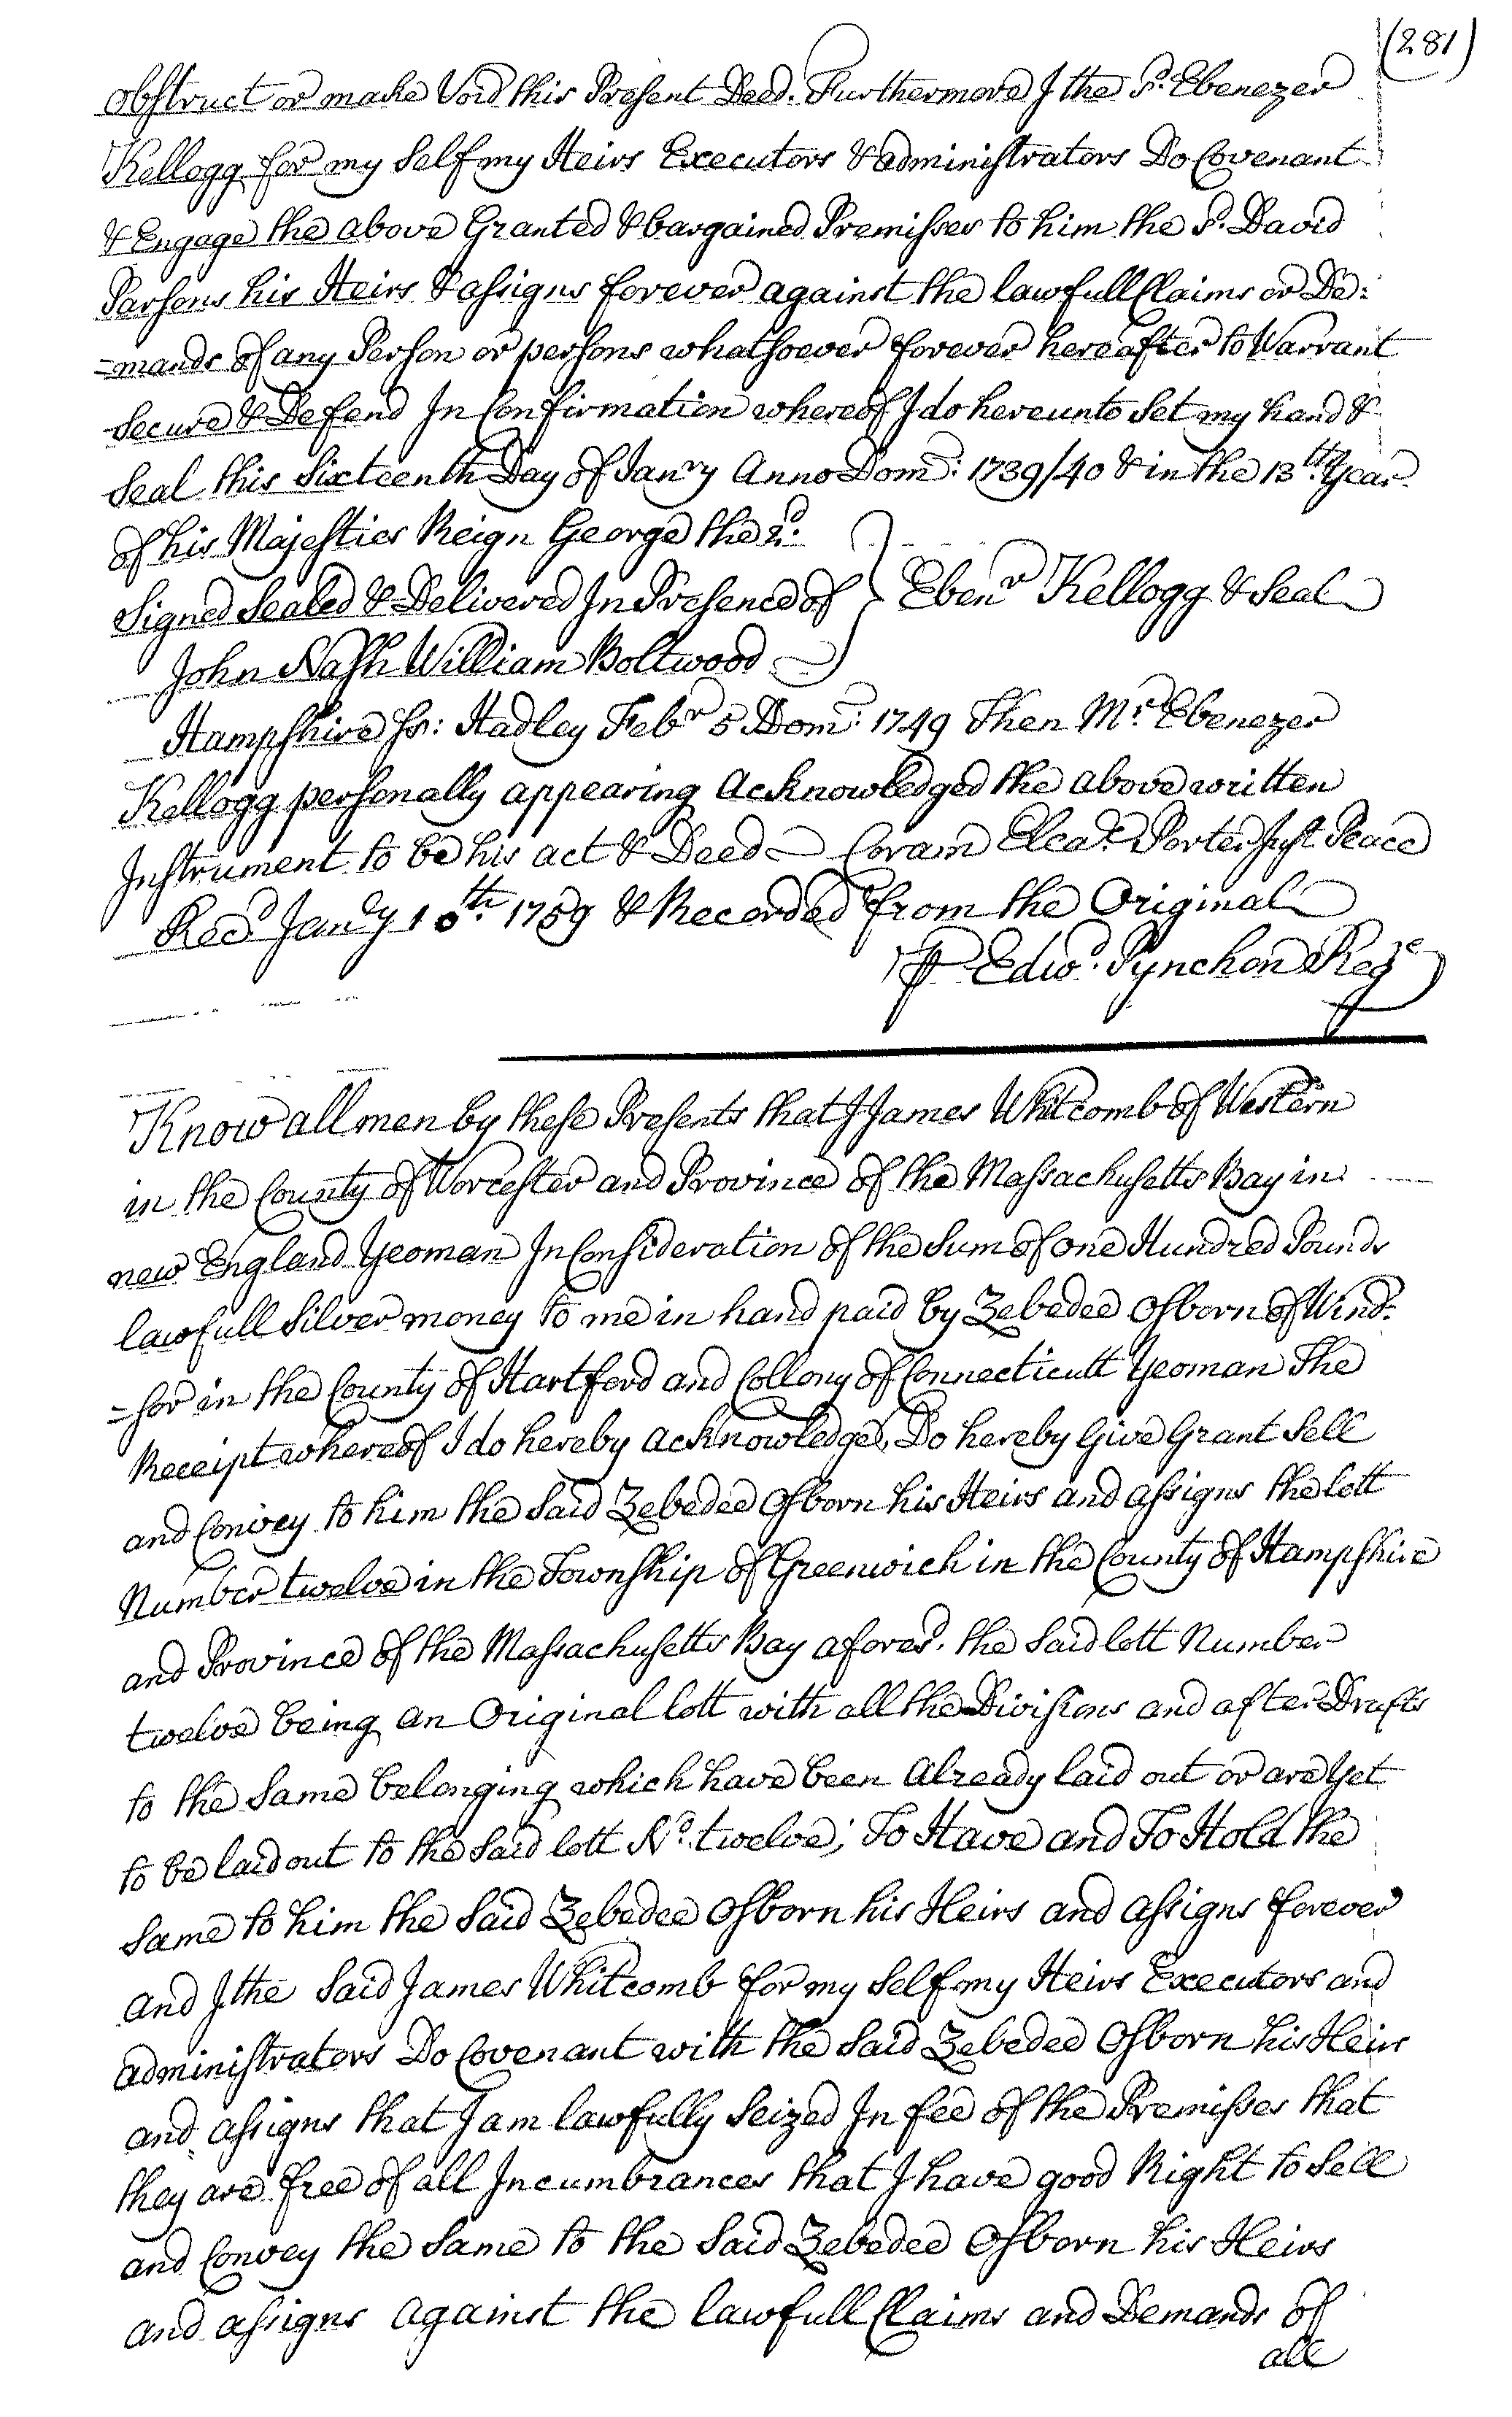 (281)
obstruct or make Void this Present Deed. Furthermore I the sd. Ebenezer
Kellogg for my self my Heirs Executors & administrators Do Covenant
& Engage the above Granted & bargained Premisses to him the sd. David
Parsons his Heirs & assigns forever against the lawfull Claims or De:
=mands of any Person or persons whatsoever forever hereafter to Warrant
Secure & Defend In Confirmation whereof I do hereunto Set my hand &
Seal this Sixteenth Day of Janry Anno Dom: 1739/40 & in the 13th Year
of his Majesties Reign George the 2d.
Signed Sealed & Delivered In Presence of } Ebenr Kellogg & Seal
John Nash William Boltwood
Hampshire ss: Hadley Febr 5 Dom: 1749 Then Mr. Ebenezer
Kellogg personally appearing acknowledged the above written
Instrument to be his act & Deed Coram Eleazr Porter Just Peace
Recd Jandy 10th. 1759 & Recorded from the Original
Edwd. Pynchon Regr
Know all men by these Presents that I James Whitcomb of Western
in the County of Worcester and Province of the Massachusetts Bay in
new England Yeoman In Consideration of the Sum of one Hundred Pounds
lawfull Silver money to me in hand paid by Zebedee Osborn of Wind:
=sor in the County of Hartford and Collony of Connecticutt Yeoman The
Receipt whereof I do hereby acknowledge, Do hereby Give Grant Sell
and Convey to him the Said Zebedee Osborn his Heirs and assigns the lott
Number twelve in the Township of Greenwich in the County of Hampshire
and Province of the Massachusetts Bay aforesd. the Said lott Number
twelve being an Original lott with all the Divisions and after Drafts
to the Same belonging which have been already laid out or are Yet
to be laid out to the Said lott No. twelve; To Have and To Hold the
Same to him the Said Zebedee Osborn his Heirs and assigns forever
and I the Said James Whitcomb for my self my Heirs Executors and
administrators Do Covenant with the Said Zebedee Osborn his Heirs
and assigns that I am lawfully Seized In fee of the Premisses that
they are free of all Incumbrances that I have good Right to Sell
and Convey the Same to the Said Zebedee Osborn his Heirs
and assigns against the lawfull Claims and Demands of
all